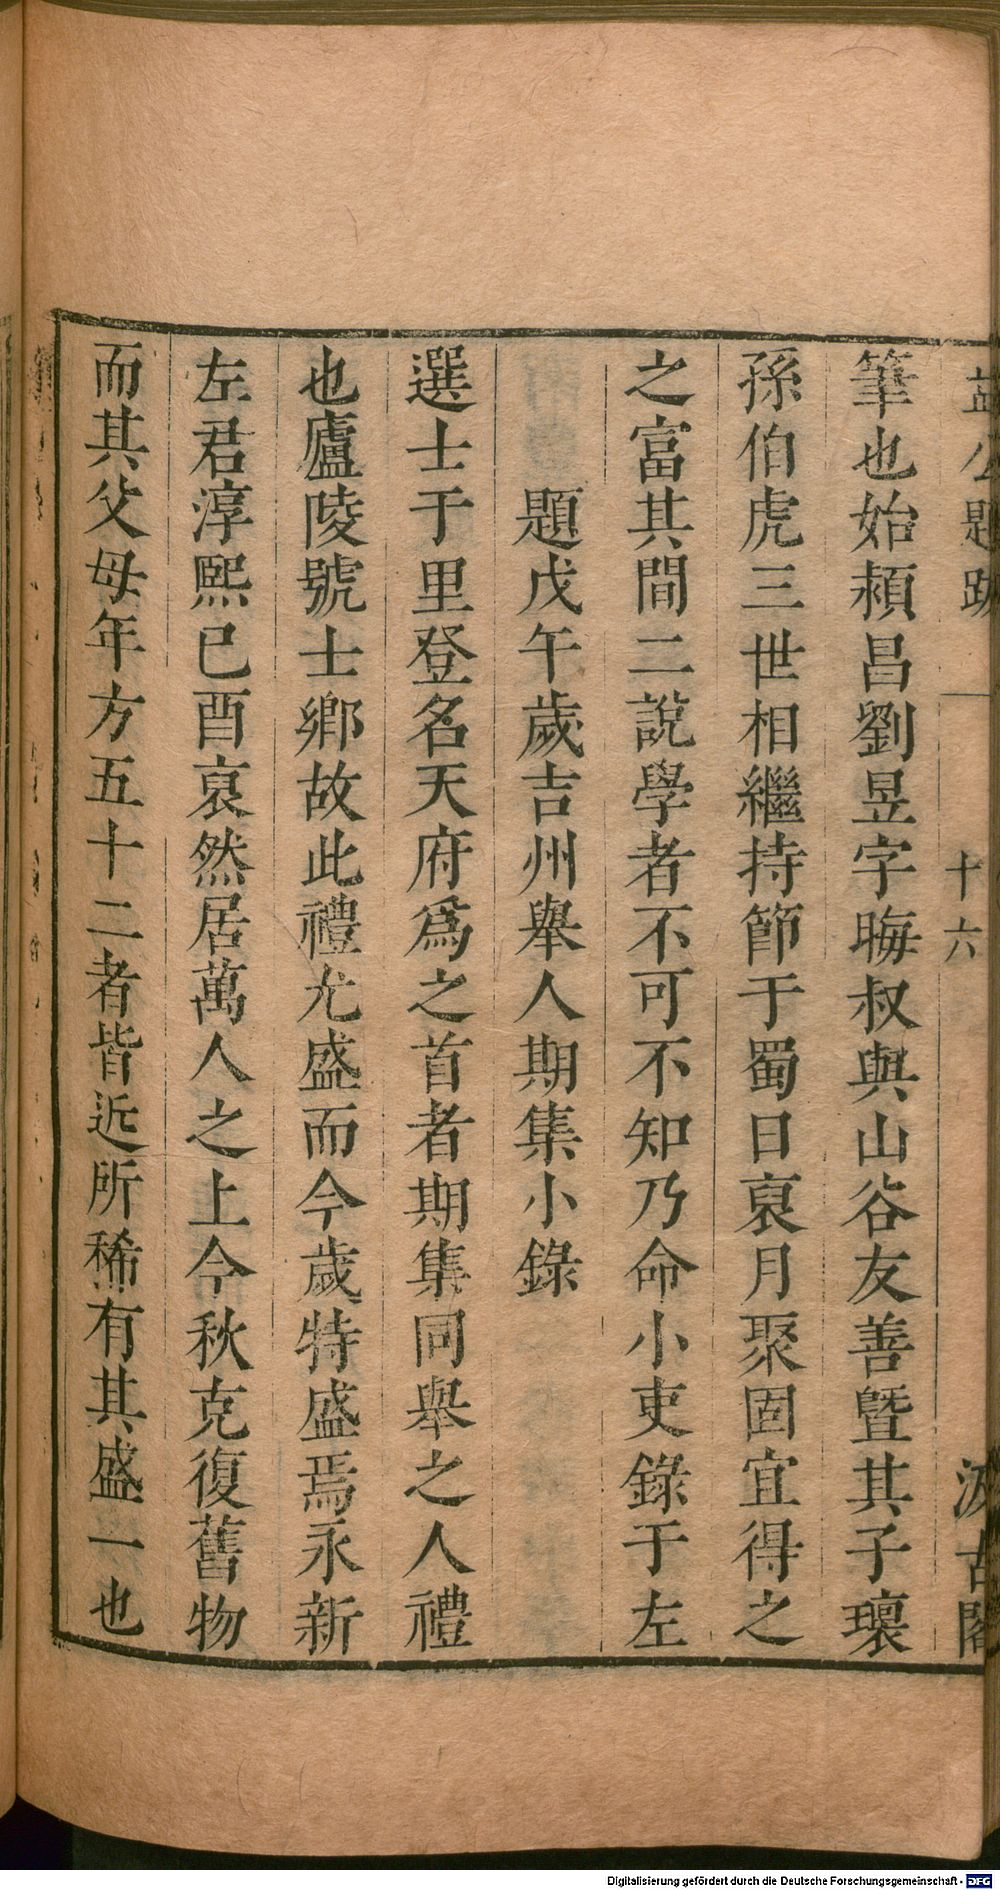 益公題跋
十六
汲古閣
筆也始頴昌劉昱字晦叔與山谷友善曁其子瓌
孫伯虎三世相繼持節于蜀日裒月聚固宜得之
之富其間二說學者不可不知乃命小吏錄于左
題戊午歲吉州舉人期集小錄
選士于里登名天府爲之首者期集同舉之人禮
也廬陵號士鄉故此禮尤盛而今歲特盛焉永新
左君淳熙已酉裒然居萬人之上今秋克復舊物
而其父母年方五十二者皆近所稀有其盛一也
Digitalisierung gefördert durch die Deutsche Forschungsgemeinschaft - DFG